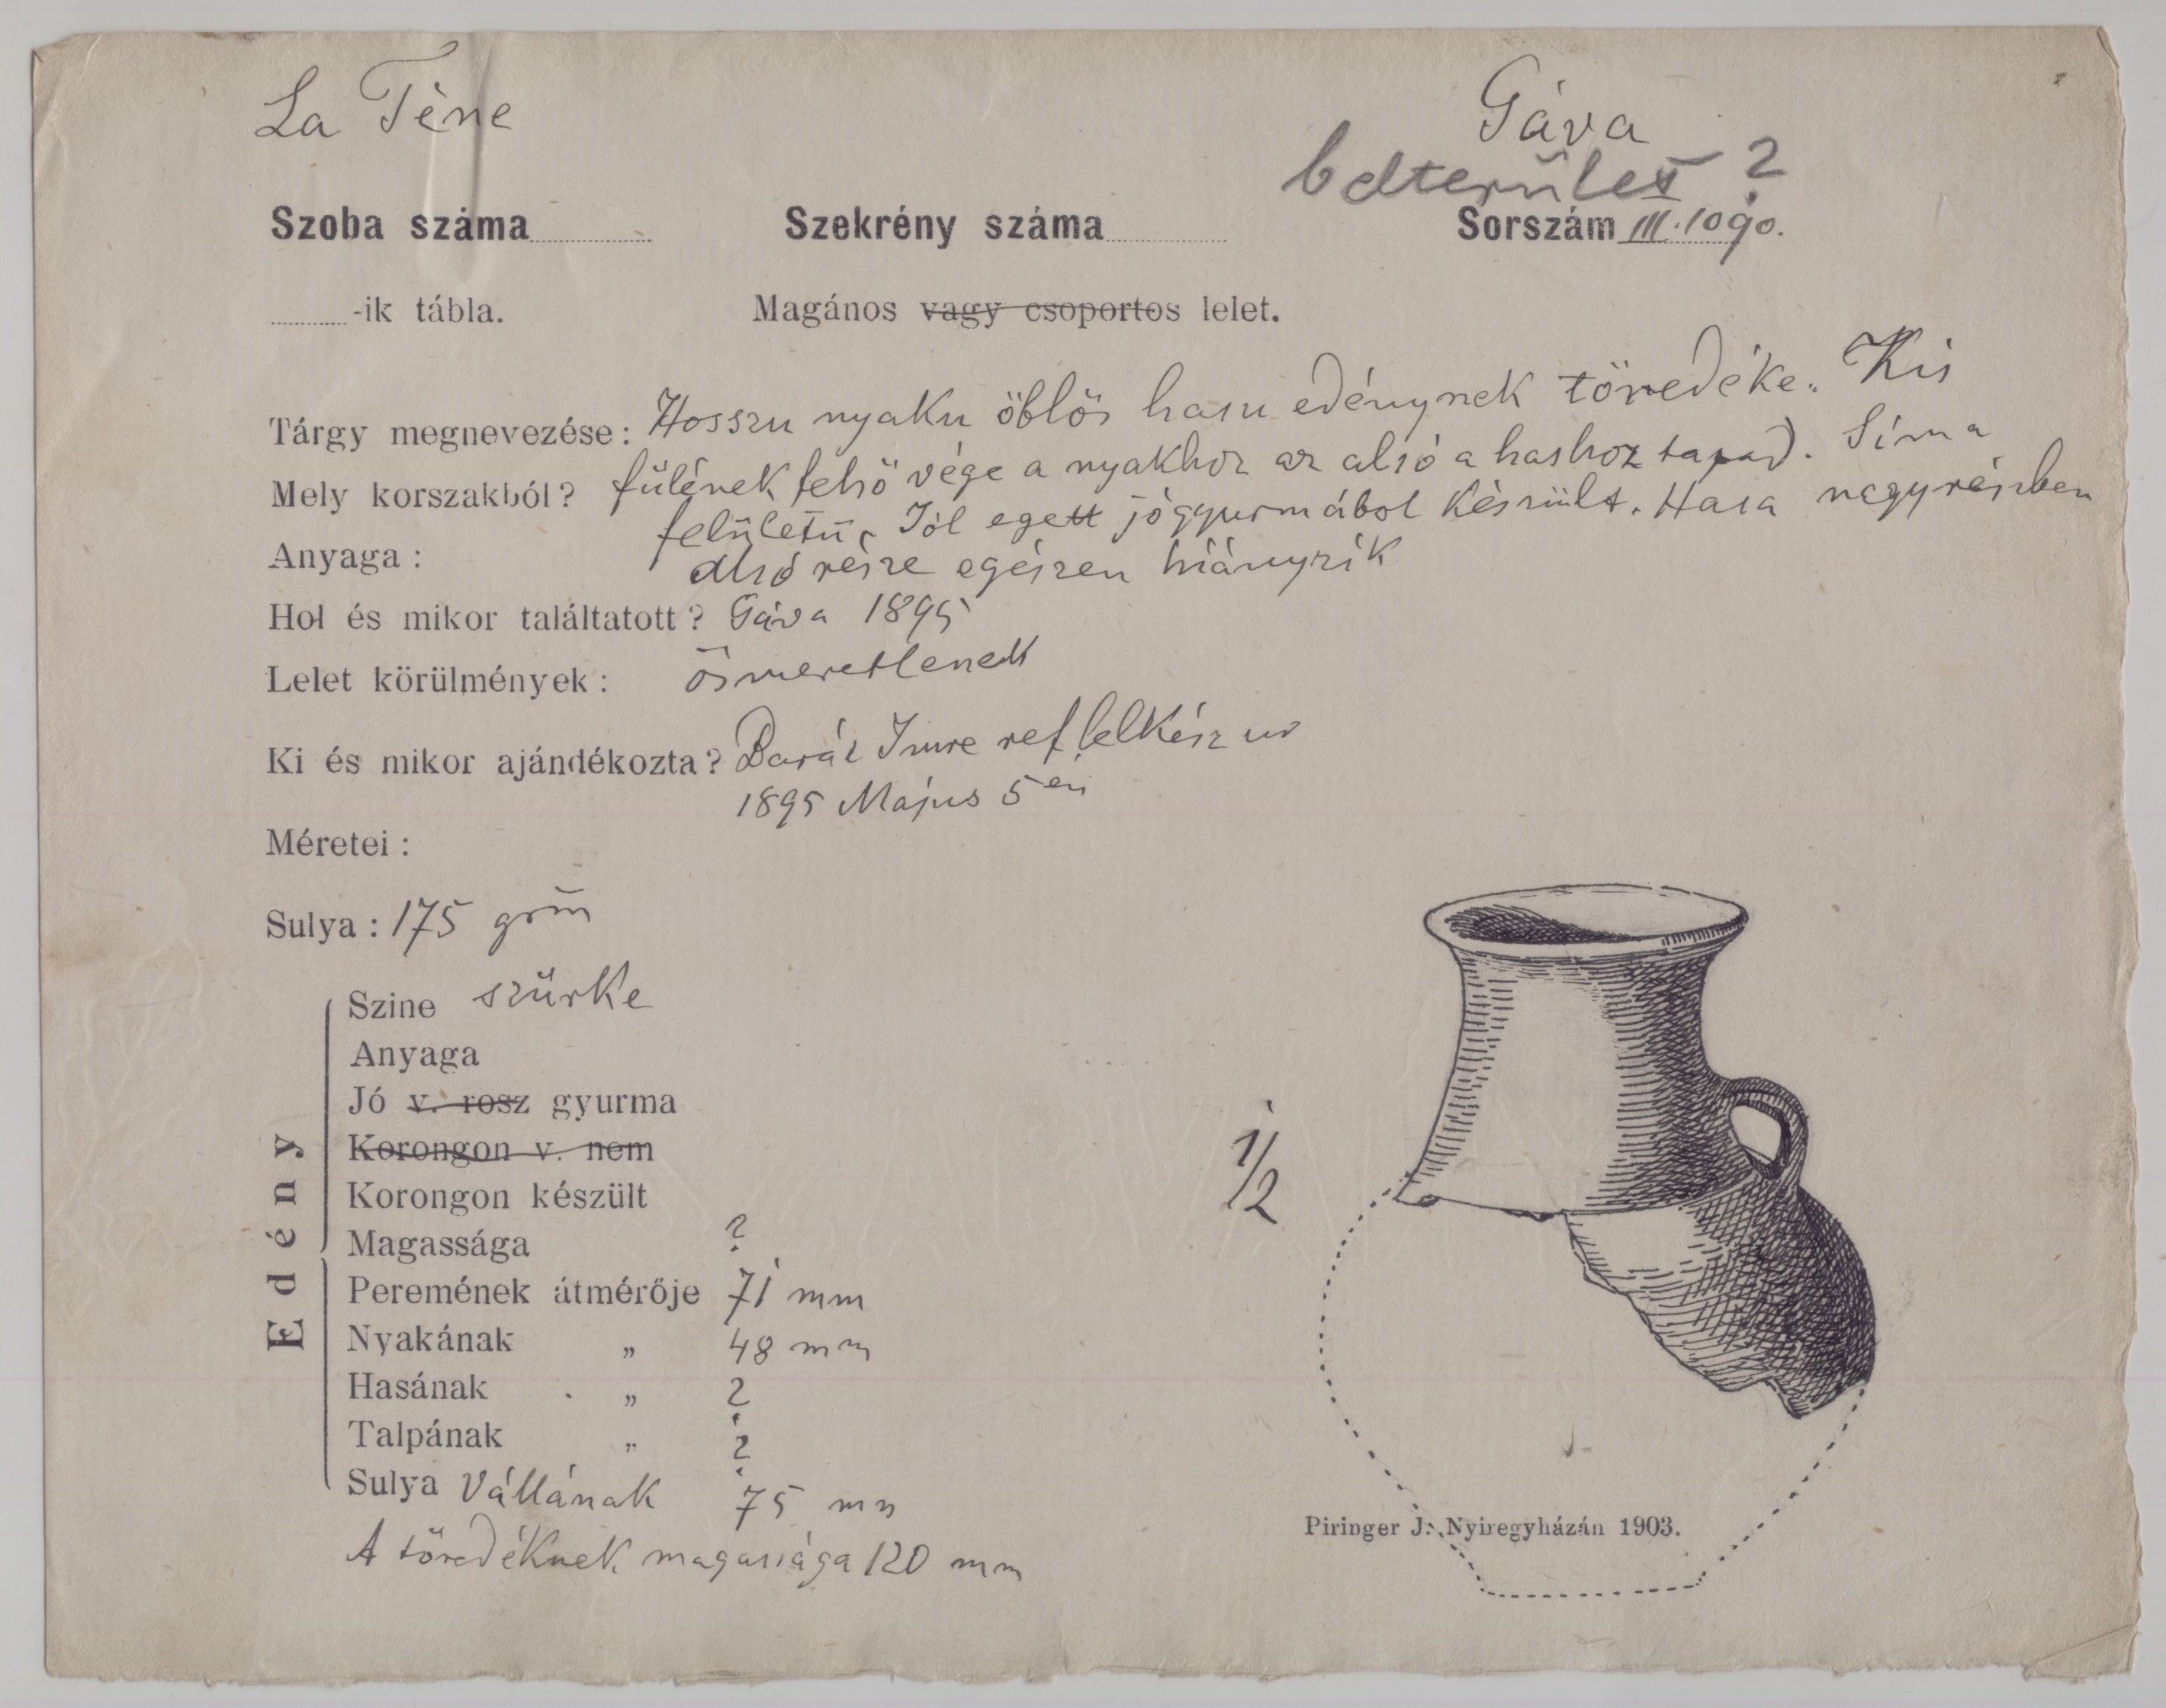 La Tène
Gáva
belterület ?
Szoba száma
Szekrény száma
Sorszám III.1090.
-ik tábla.
Magános vagy csoportos lelet.
Tárgy megnevezése: Hosszu nyaku öblös hasu edénynek töredéke. Kis
Mely korszakból? fülének felső vége a nyakhoz az alsó a hashoz tapad. Sima
felületü. Jól egett jógyurmábol készült. Hasa nagyrészben
Anyaga :
alsó része egészen hiányzik
Hol és mikor találtatott? Gáva 1895
Lelet körülmények : ösmeretlenek
Ki és mikor ajándékozta? Imre ref lelkész ur
1895 Május 5en
Méretei :
Sulya : 175 grm
Edény
Szine szürke
Anyaga
Jó v. rosz gyurma
Korongon v. nem
Korongon készült
Magassága ?
Peremének átmérője 71 mm
Nyakának „ 48 mm
Hasának „ ?
Talpának „ ?
Sulya Vállának 75 mm
A töredéknek magassága 120 mm
1/2
Piringer J. Nyiregyházán 1903.